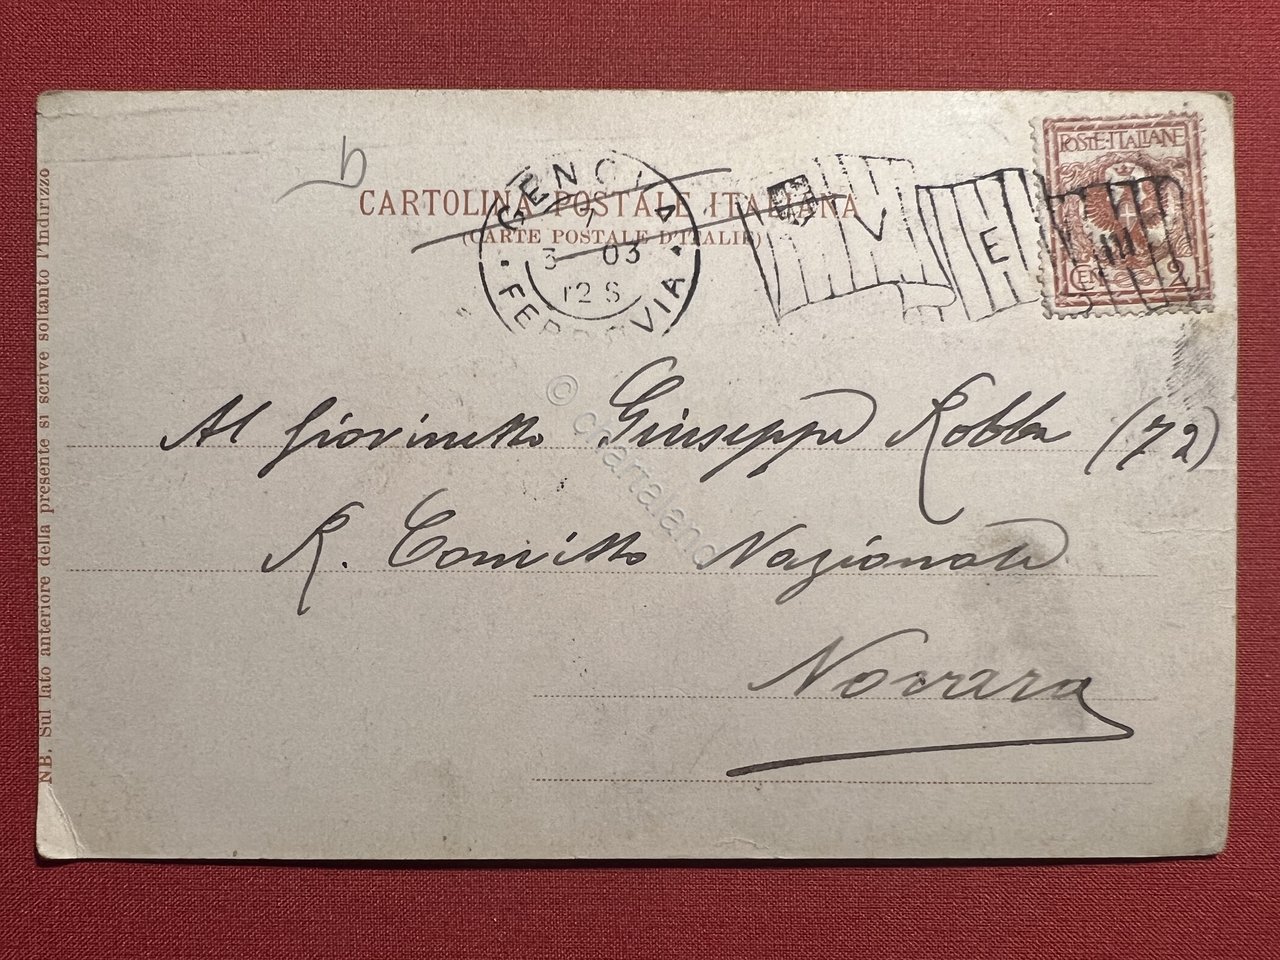 CARTOLINA POSTALE ITALIANA
(CARTE POSTALE D'ITALIE)
GENOVA
3 03
12 S
FERROVIA
V E III
POSTE·ITALIANE
CEN. 2
Al Giovinetto Giuseppe Robba (72)
R. Convitto Nazionale
Novara
NB. Sul lato anteriore della presente si scrive soltanto l'indirizzo
© chartaland